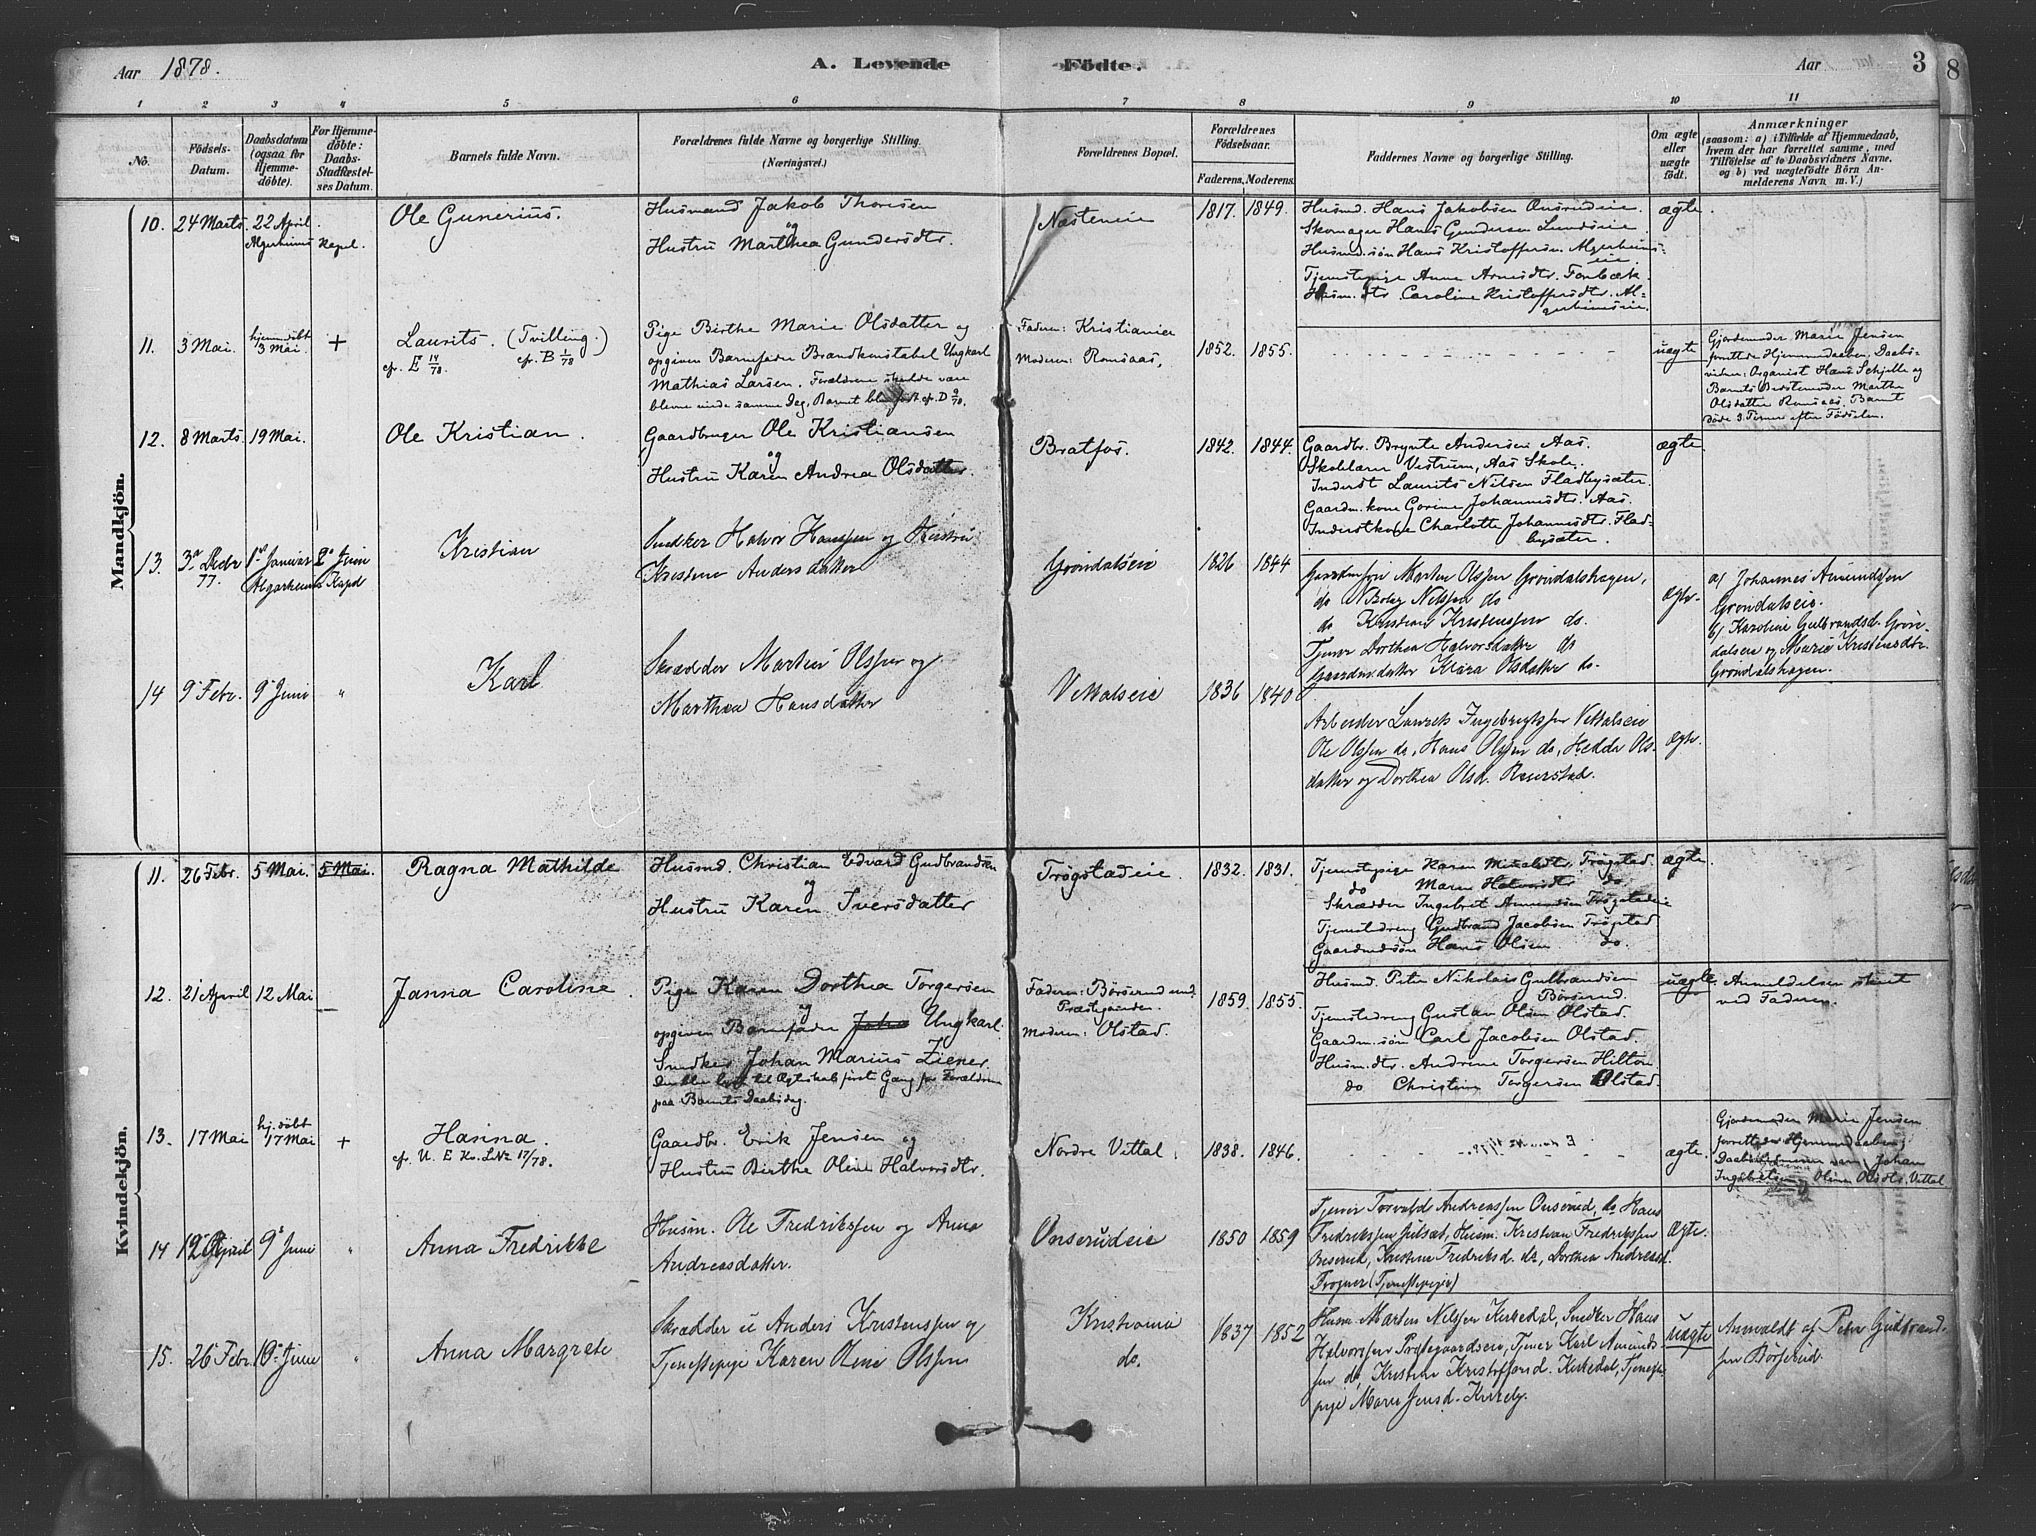 Aar 1878. A. Levende Fødte. Aar 3
8
1 2 3 4 5 6 7 8 9 10 11
No.
Fødsels-
Datum.
Daabsdatum
(ogsaa for
Hjemme-
døbte).
For Hjemme-
døbte:
Daabs-
Stadfæstel-
ses Datum.
Barnets fulde Navn.
Forældrenes fulde Navne og borgerlige Stilling.
(Næringsvei.)
Forældrenes Bopæl.
Forældrenes
Fødselsaar.
Faderens. Moderens.
Faddernes Navne og borgerlige Stilling.
Om ægte
eller
uægte
født.
Anmærkninger
(saasom: a) i Tilfælde af Hjemmedaab,
hvem der har forrettet samme, med
Tilføielse af to Daabsvidners Navne,
og b) ved uægtefødte Børn An-
melderens Navn m. V.)
Mandkjön.
10. 24 Marts 22 April.
Algarheims Kapel.
Ole Gunerius.
Husmand Jakob Thoresen
og
Hustru Marthea Gundersdtr.
Næsteneie
1817. 1849.
Husmd. Hans Jakobsen Onsrudeie.
Skomager Hans Gundersen Lundseie.
Husmd. søn Hans Kristoffersen Algerheims-
eie.
Tjenestepige Anne Arnesdtr. Fonbæk.
Husm. dtr. Caroline Kristoffersdtr. Al-
gerheimseie.
ægte
11. 3 Mai. hjemdøbt
3 Mai. +
Laurits. (Tvilling.)
cfr. E 14/78. cfr. B 1/78
Pige Birthe Marie Olsdatter og
opgiven Barnefader Brandkonstabel Ungkarl
Mathias Larsen. Forældrene skulde være
blevne viede samme Dag, Barnet blev født cfr. D 9/78.
Faderen: Kristiania
Moderen: Romsaas,
1852. 1855.
uægte
Gjordemoder Marie Jensen
forrettede Hjemmedaaben. Daabs-
vidner: Organist Hans Schjelle og
Barnets Bedstemoder Marthe
Olsdatter Romsaas. Barnet
døde 3 Timer efter Fødselen.
12. 8 Marts 19 Mai.
Ole Kristian.
Gaardbruger Ole Kristiansen
og
Hustru Karen Andrea Olsdatter.
Bratfos.
1842. 1844.
Gaardbr. Brynte Andersen Aas.
Skolelærer Vestrum, Aas Skole.
Inderst Laurits Nilsen Fladbysæter.
Gaardm. kone Gorine Johannesdtr. Aas.
Inderstkone Charlotte Johannesdtr. Flad-
bysæter.
ægte
13. 3 Decbr
77. 1 Januar
Algarheims 2 Juni
Kapel
Kristian
Snedker Halvor Hanssen og Hustru
Kristine Andersdatter
Grøndalseie
1826 1844
Gaardm. søn Morten Olssen Grøndalshagen,
do Nils Nilssen do
do Kristian Kristenssen do.
Tjener Dorthea Halvorsdatter do
Gaardm. datter Klara Olsdatter do.
Ægte.
a/ Johannes Amundsen
Grøndalseie.
b/ Karoline Gulbrandsd. Grøn-
dalseie og Maria Kristensdtr.
Grøndalshagen.
14 9 Febr. 9 Juni "
Karl
Skrædder Martin Olssen og
Marthea Hansdatter
Vettalseie
1836 1840
Arbeider Laurits Ingebrigtsen Vettalseie
Ole Olssen do, Hans Olssen do, Hedda Ols-
datter og Dorthea Olsd. Raverstad.
Ægte.
Kvindekjön.
11. 26 Febr. 5 Mai. 5 Mai.
Ragna Mathilde
Husmd. Christian Edvard Gudbrandsen
og
Hustru Karen Iversdatter
Trøgstadeie.
1832. 1831.
Tjenestepige Karen Trøgstad.
do Maren Halvorsdtr. do
Skrædder Ingebret Amundsen Trøgstadeie
Tjenestedreng Gudbrand Jacobsen Trøgstad
Gaardmdsøn Hans Olsen do.
ægte
12. 21 April 12 Mai
Janna Caroline.
Pige Karen Dorthea Torgersen
og
opgiven Barnefader Joha Ungkarl
Snedker Johan Marius Ziener.
Der blev lyst til Ægteskab første Gang for Forældrene
paa Barnets Daabsdag.
Faderen: Børserud und.
Præstegaarden.
Moderen: Olstad.
1859. 1855.
Husmd. Peter Nikolais Gulbrandsen
Børserud.
Tjenestedreng Gustav Olsen Olstad.
Gaardm. søn Carl Jacobsen Olstad.
Husm. dtr. Andrine Torgersen Hilton
do Christine Torgersen Olstad.
uægte
Anmeldelsen skeet
ved Faderen.
13. 17 Mai hj. døbt
17 Mai +
Hanna.
cfr. U. E Kv. LNr 17/78.
Gaardbr. Erik Jensen og
Hustru Birthe Oline Halvorsdtr.
Nordre Vittal.
1838. 1846.
ægte.
Gjordemoder Marie Jensen
forrettede Hjemmedaaben
Johan
Ingebretsen Oline Olsdtr. Vittal
14 12 April 9 Juni "
Anna Fredrikke
Husm. Ole Fredrikssen og Anna
Andreasdatter.
Onserudeie
1850 1859
Tjener Torvald Andreassen Onserud, do Hans
Fredrikssen Husm. Kristian Fredrikssen
Onserud, Kristine Fredriksd. do, Dorthea Andreasd.
Frogner (Tjenestepiger)
Ægte.
15. 26 Febr. 10 Juni "
Anna Margrete
Skrædder u Anders Kristenssen og
Tjenestepige Karen Oline Olssen
Kristiania
do.
1837 1852
Husm Morten Nilssen Kirkedal, Snedker Hans
Halvorssen Prestegaardseie, Tjener Karl Amunds-
sen do, Kristine Kristoffersd. Kirkedal, Tjeneste-
pige Maren Jensd. Kirkeby.
uægte
Anmeldt af Peter Gulbrand-
sen Børserud.